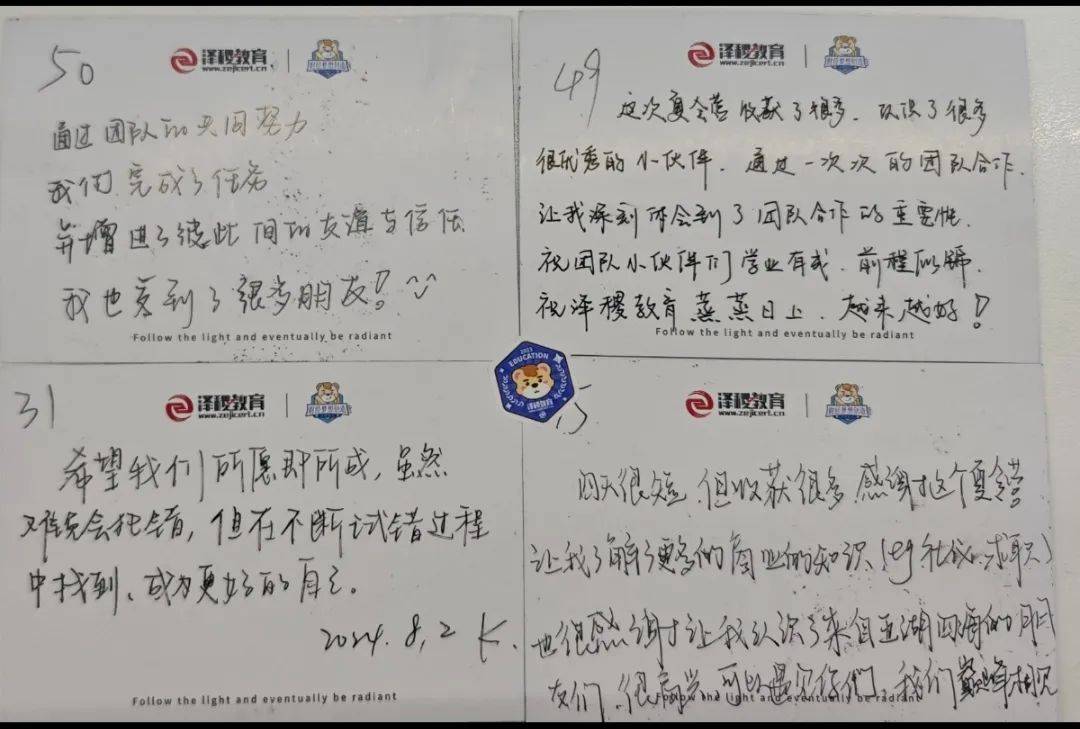 50
泽稷教育
www.zejicert.cn
通过团队的共同努力
我们完成了任务
并增进了彼此间的友谊与信任
我也交到了很多朋友!
Follow the light and eventually be radiant
49
泽稷教育
www.zejicert.cn
这次夏令营收获了很多、认识了很多
很优秀的小伙伴.通过一次次的团队合作.
让我深刻体会到了团队合作的重要性.
祝团队小伙伴们学业有成、前程似锦.
祝泽稷教育蒸蒸日上、越来越好!
Follow the light and eventually be radiant
31
泽稷教育
www.zejicert.cn
希望我们所愿即所成,虽然
难免会犯错,但在不断试错过程
中找到、成为更好的自己。
2024.8.2 K.
Follow the light and eventually be radiant
2023
EDUCATION
泽稷教育
5
泽稷教育
www.zejicert.cn
四天很短,但收获很多 感谢这个夏令营
让我了解了更多的商业的知识(eg 社战、求职)
也很感谢让我认识了来自五湖四海的朋
友们、很高兴可以遇见你们、我们巅峰相见
Follow the light and eventually be radiant